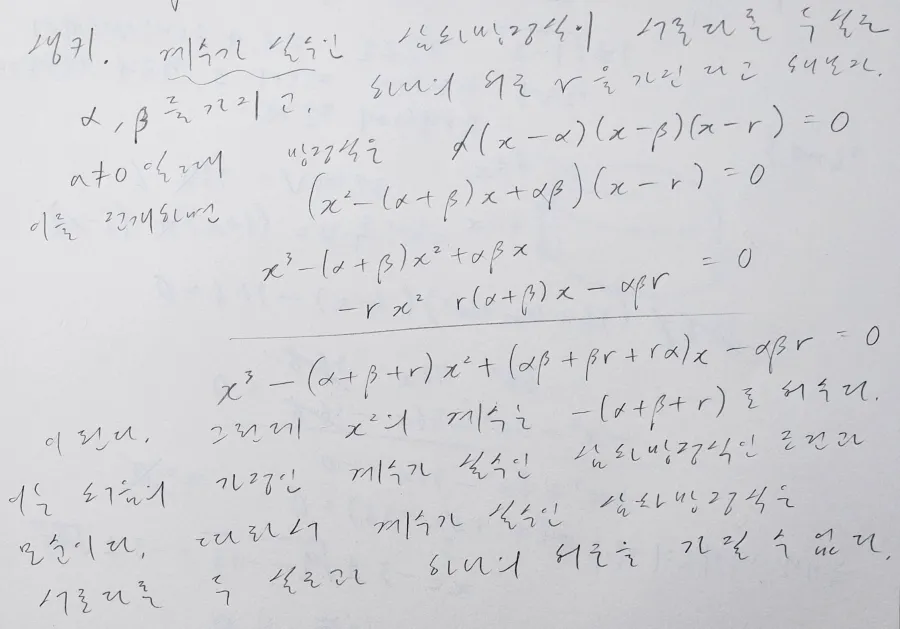 생귀. 계수가 실수인 삼차방정식이 서로다른 두 실근
α, β를 가지고, 하나의 허근 r을 가진다고 해보자.
a≠0일 때 방정식은 a(x-α)(x-β)(x-r) = 0
이를 전개하면 (x²-(α+β)x+αβ)(x-r) = 0
x³-(α+β)x²+αβx
-rx² r(α+β)x - αβr = 0
x³ - (α+β+r)x² + (αβ+βr+rα)x - αβr = 0
이 된다. 그런데 x²의 계수는 -(α+β+r)로 허수다.
이는 처음의 가정인 계수가 실수인 삼차방정식인 조건과
모순이다. 따라서 계수가 실수인 삼차방정식은
서로다른 두 실근과 하나의 허근을 가질 수 없다.